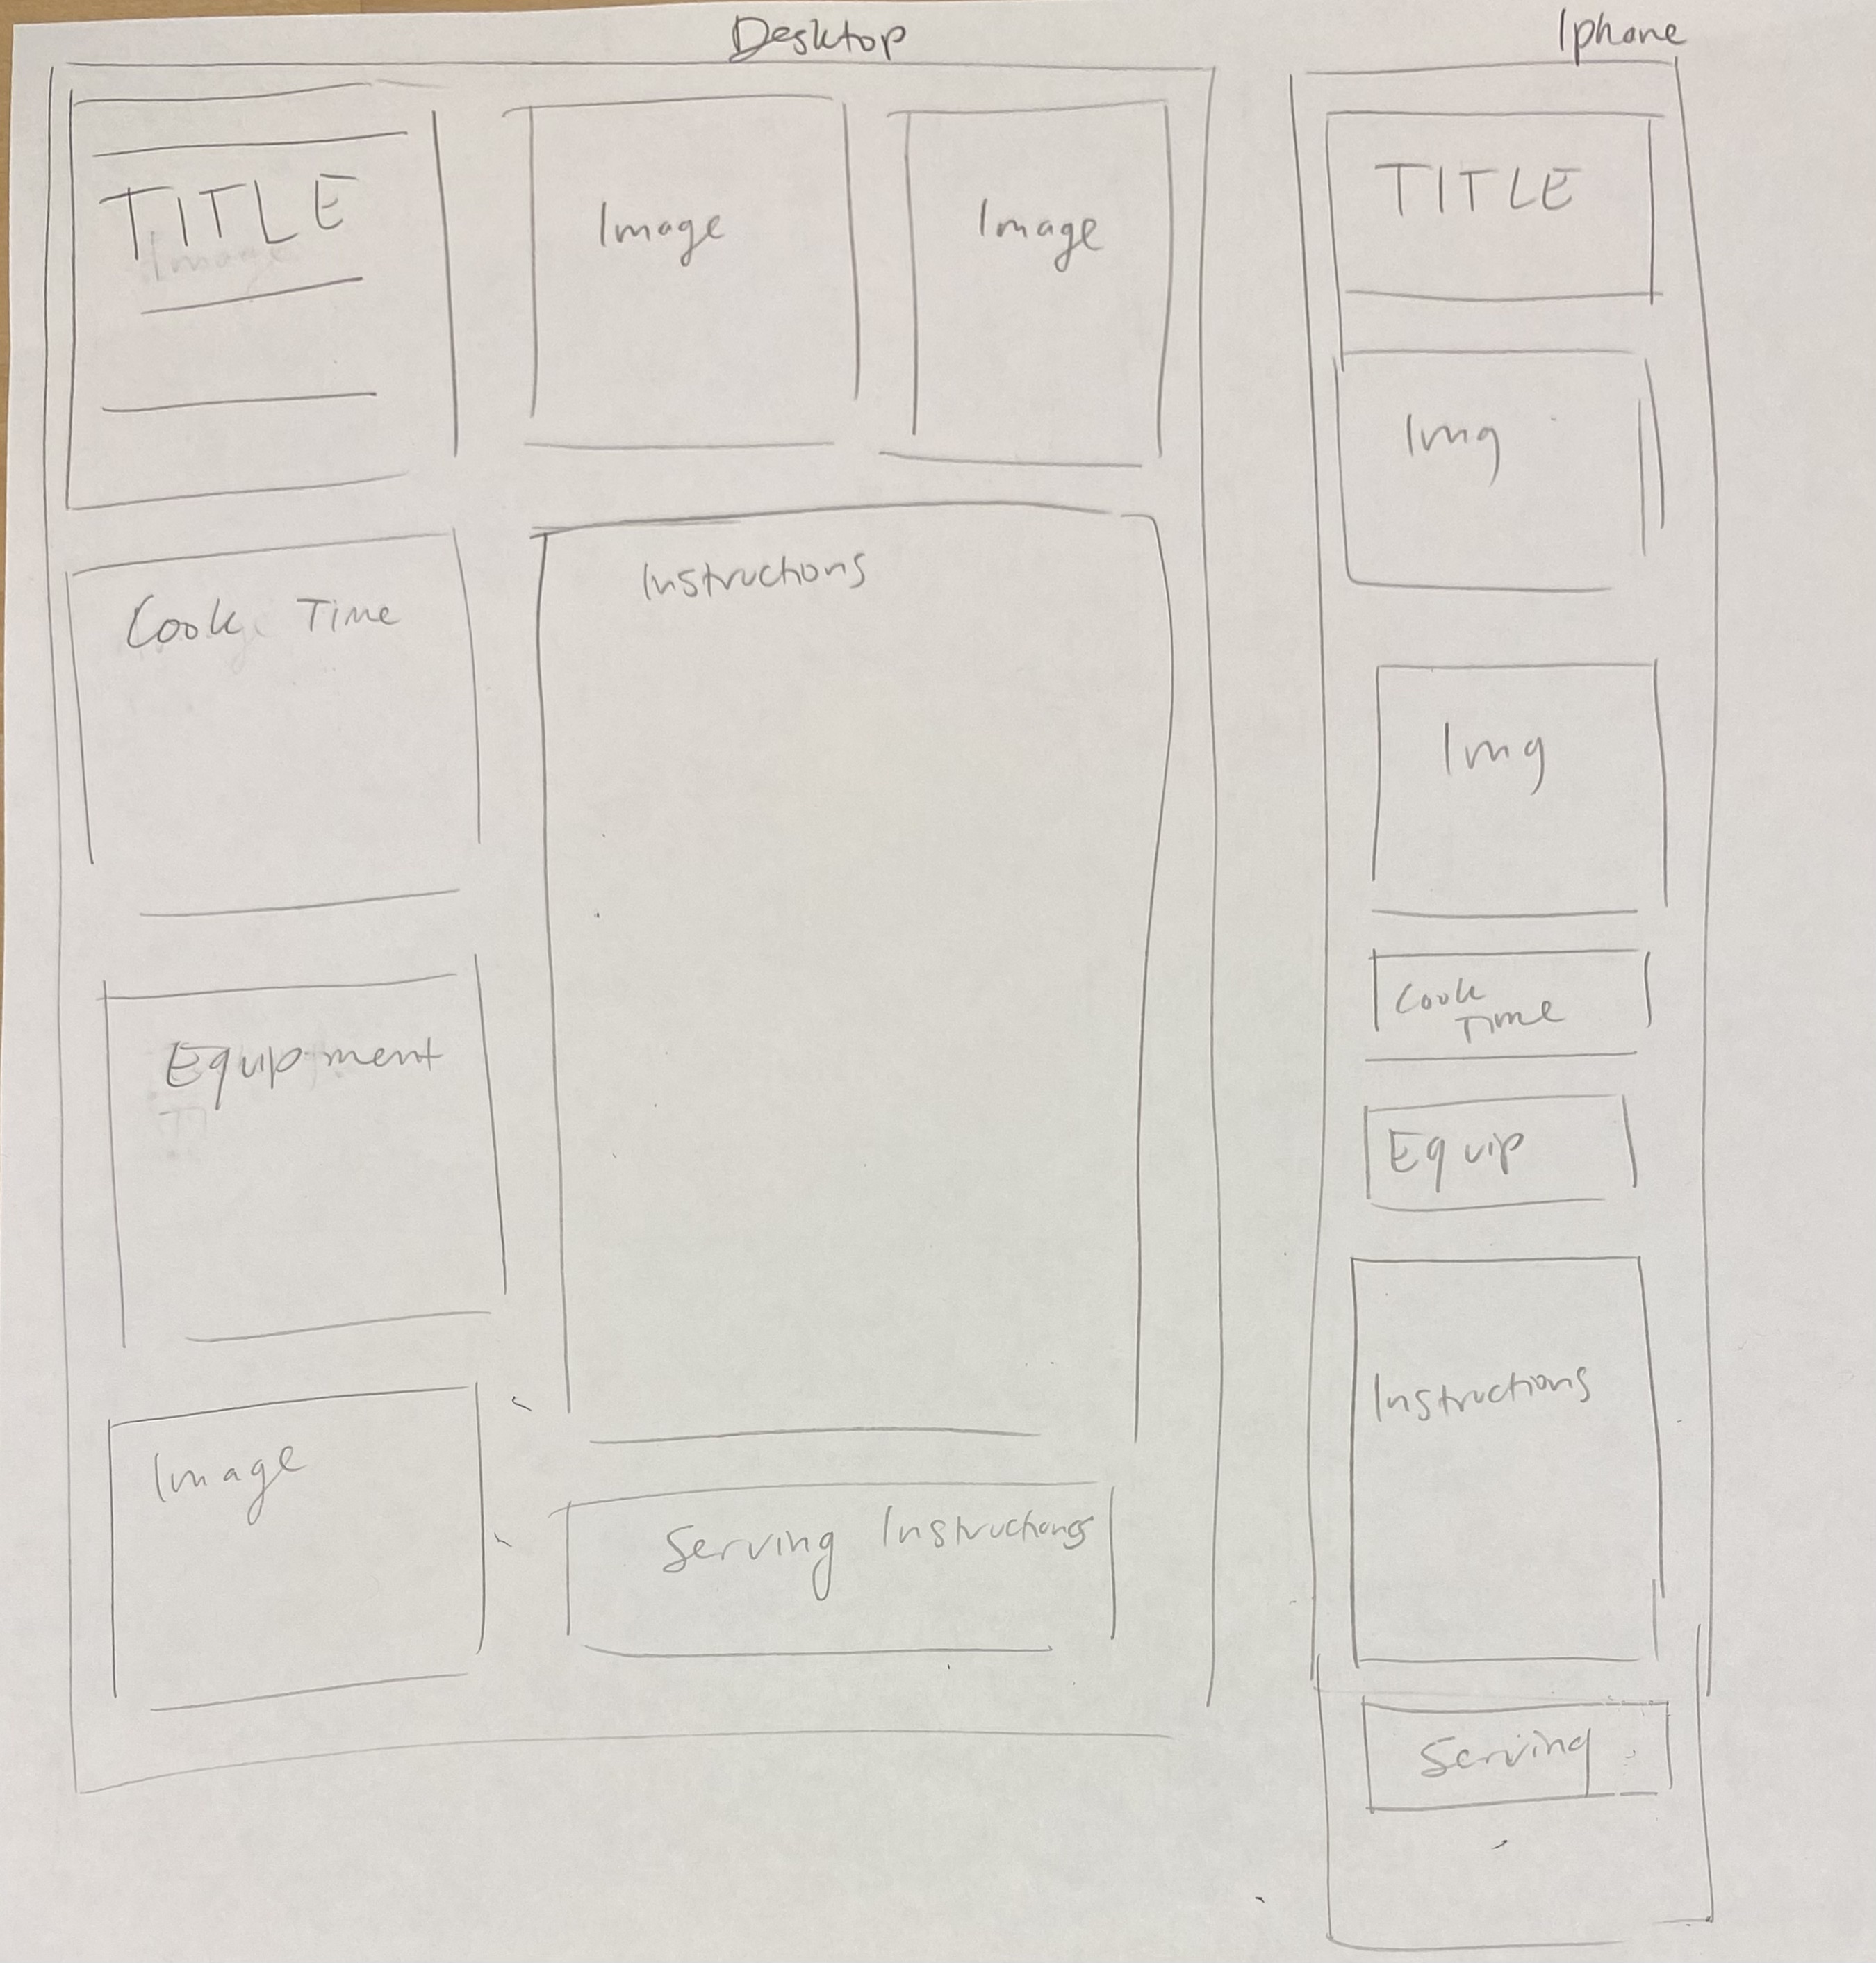 Desktop
TITLE
Image
Image
Cook Time
Instructions
Equipment
Image
Serving Instructions
Iphone
TITLE
Img
Img
Cook
Time
Equip
Instructions
Serving